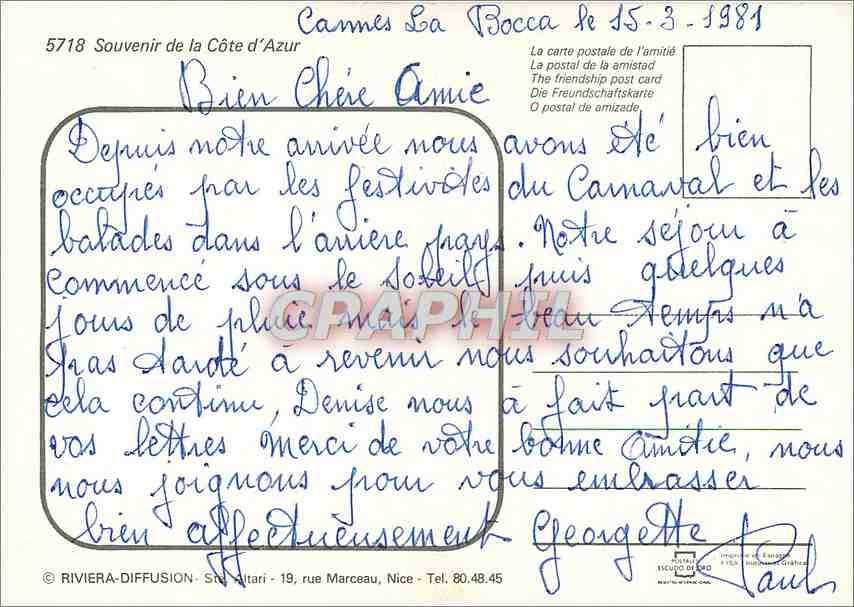 Cannes La Bocca le 15-3-1981
5718 Souvenir de la Côte d'Azur
La carte postale de l'amitié
La postal de la amistad
The friendship post card
Die Freundschaftskarte
O postal de amizade
Bien Chére Amie
Depuis notre arrivée nous avons été bien
occupés par les festivités du Carnaval et les
balades dans l'arriere pays. Notre séjour à
commencé sous le soleil puis quelques
jours de pluie mais le beau temps n'a
pas tardé à revenir nous souhaitons que
cela continu, Denise nous à fait part de
vos lettres Merci de votre bonne amitie, nous
nous joignons pour vous embrasser
bien affectueusement Georgette
Paul
GRAPHIL
© RIVIERA-DIFFUSION - Sté Altari - 19, rue Marceau, Nice - Tel. 80.48.45
POSTALES
ESCUDO DE ORO
Imprimé en Espagne
FISA Industrias Gráficas